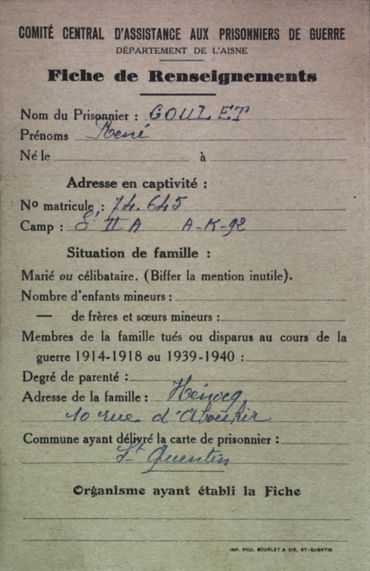 COMITÉ CENTRAL D'ASSISTANCE AUX PRISONNIERS DE GUERRE
DÉPARTEMENT DE L'AISNE
Fiche de Renseignements
Nom du Prisonnier : GOULET
Prénoms René
Né le à
Adresse en captivité :
No matricule : 74.645
Camp : II A A-K-92
Situation de famille :
Marié ou célibataire. (Biffer la mention inutile).
Nombre d'enfants mineurs :
— de frères et sœurs mineurs :
Membres de la famille tués ou disparus au cours de la
guerre 1914-1918 ou 1939-1940 :
Degré de parenté :
Adresse de la famille :
10 rue d'Aboukir
Commune ayant délivré la carte de prisonnier :
St Quentin
Organisme ayant établi la Fiche
IMP. PAUL BOURLET & CIE, ST-QUENTIN